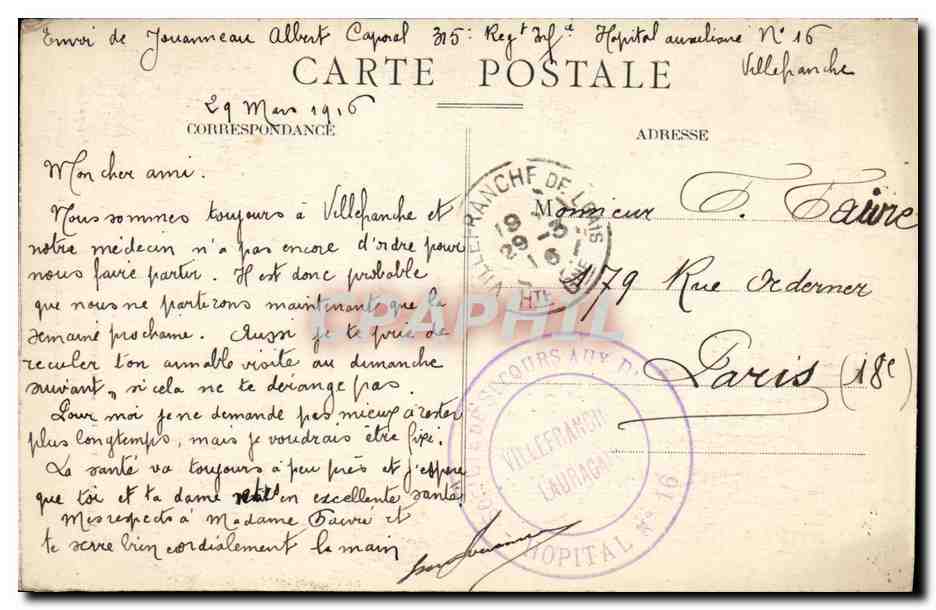 Envoi de Jouanneau Albert Caporal 315e Regt Infie Hopital auxiliaire N° 16
Villefranche
CARTE POSTALE
29 Mars 1916
CORRESPONDANCE
ADRESSE
Mon cher ami.
Nous sommes toujours à Villefranche et
notre médecin n'a pas encore d'ordre pour
nous faire partir. Il est donc probable
que nous ne partirons maintenant que la
semaine prochaine. Aussi je te prie de
reculer ton aimable visite au dimanche
suivant, si cela ne te dérange pas.
Pour moi je ne demande pas mieux à rester
plus longtemps, mais je voudrais être fixé.
La santé va toujours à peu près et j'espère
que toi et ta dame êtes en excellente santé
Mes respects à Madame Favré et
te serre bien cordialement la main
Monsieur F. Faivre
179 Rue Ordener
Paris (18e)
VILLEFRANCHE DE LAURAGAIS
HTE GARONNE
29 - 3
16
SECOURS AUX
VILLEFRANCHE
LAURAGAIS
HOPITAL N° 16
CPAPHIL